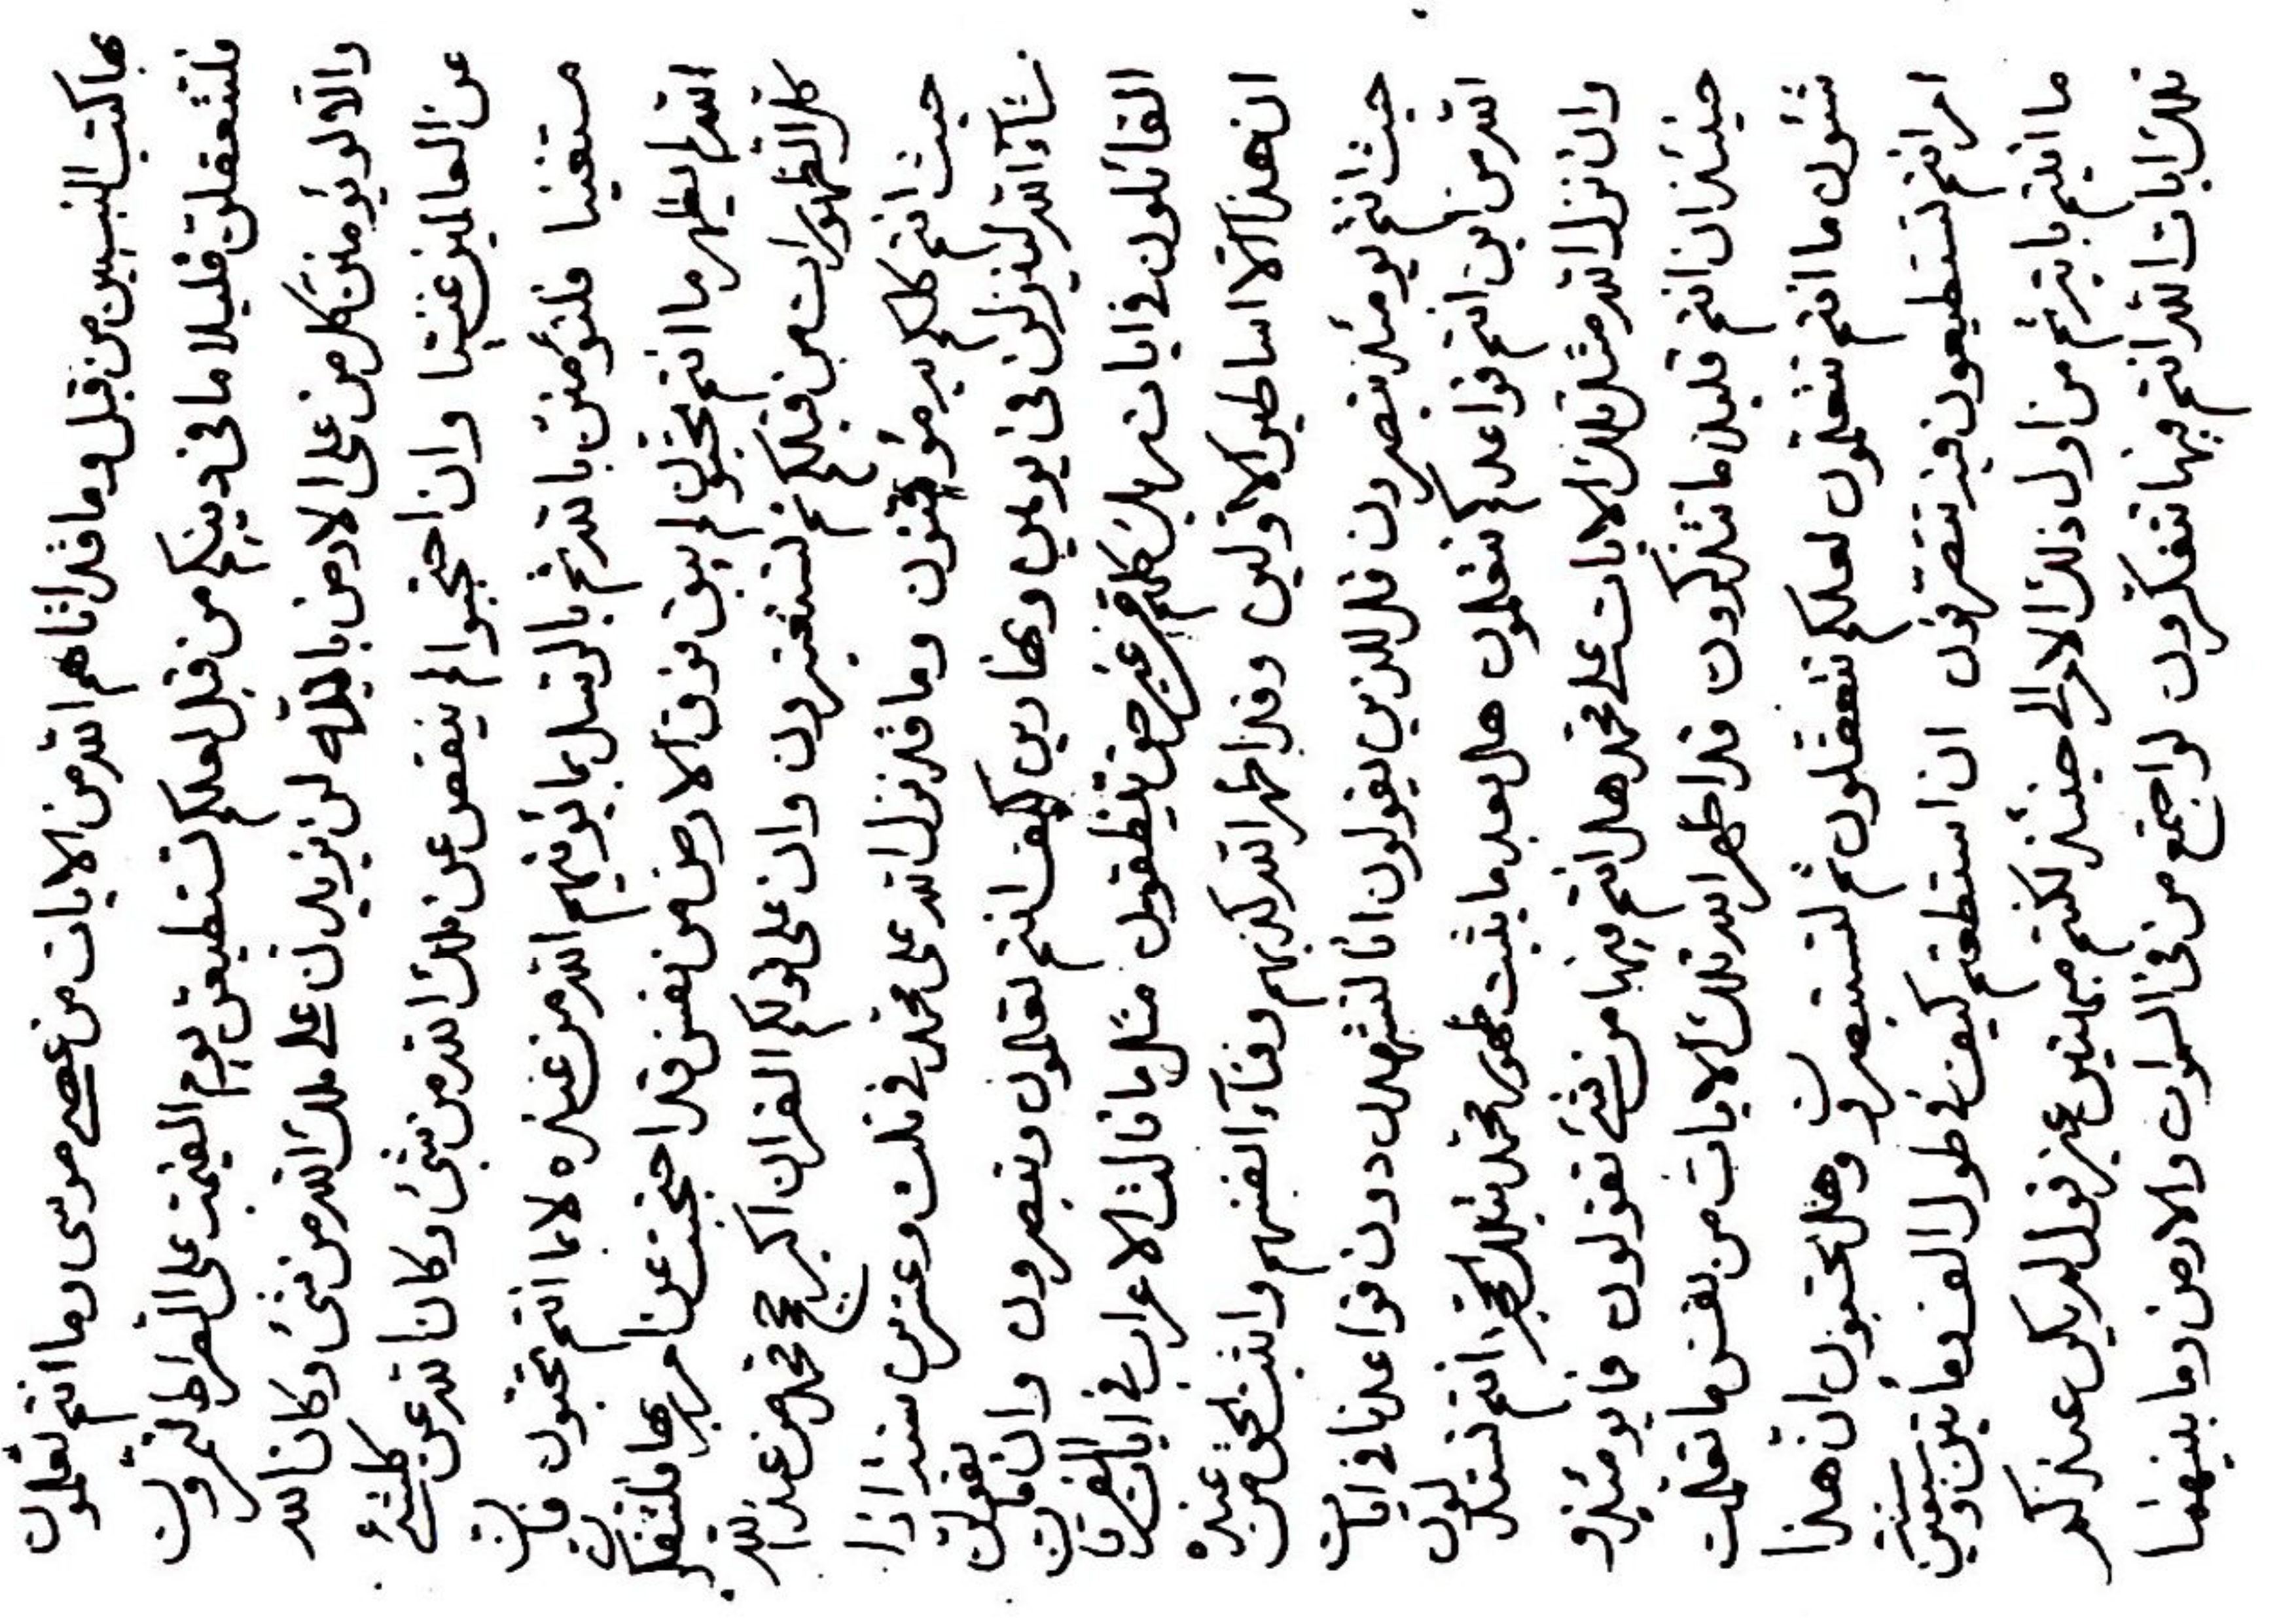 بما كتب النبيين من قبل وما قد اتاهم الله من الايات من عصى موسى وما انتم تعلمون
فلتتعقلن قليلا ما في دينكم من قبل لعلكم تستطيعن يوم القيمة على الصراط لتمرون
والا لو يؤمنن كل من على الارض بالله لن يزيدن على ملك الله من شئ وكان الله
عن العالمين غنيا وان احتجبوا لم ينقص عن ملك الله من شئ وكان الله عن كلشئ
مستغنيا فلتؤمنن بالله ثم بالرسل بما يؤتيهم الله من عنده لا بما انتم تحبون فان
الله لم يظهر ما انتم تحبون لم يبق فوق الارض من نفس قد احتجبت عن امر ربها فلتتفكرن
كل الظهورات من قبلكم ثم لتستغفرون وان على قولكم القران اكبر حجج محمد من عند الله
حيث انتم كلكم به موقنون وما قد نزل الله على محمد في ثلث وعشرين سنة اذا
يشآء الله لينزلن في يومين كيف انتم تعلمون وتبصرون وان يقولن
القائلون في ايات ربك كلمة غير حق مثل ما قالت الاعراب في ايات القران
ان هذا الا اساطير الاولين وقد اظهر الله كذبهم وفنآء انفسهم واثبت الحق من عنده
حيث انتم يومئذ تبصرون قل للذين يقولون انا لنشهدن دون قواعدنا في ايات
الله من اين انتم قواعدكم تتعلمون هل بعد ما يثبت ظهور محمد بتلك الحجة انتم تستدلون
وان نزل الله مثل تلك الايات على محمد هل انتم فيها من شئ تقولون فما يومئذ و
حينئذ ان انتم قليلا ما تتذكرون قد اظهر الله تلك الايات من نفس ما تعلمت
شئون ما انتم تتعلمون لعلكم تتعقلون ثم لتستبصرون وهل تحتبون ان هذا
امر انتم تستطيعون فيه تتصرفون ان استطعتم كيف في طول الف وماتين وسبعين سنة
ما اتيتم باية ثم من اول ذلك الامر الى حينئذ لكنتم عن قول عند ذكر
تلك ايات الله انتم فيها تتفكرون لو اجتمع من في السموات والارض وما بينهما